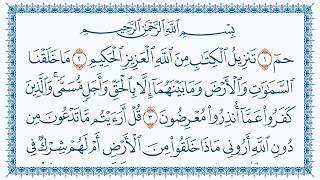 بِسْمِ اللَّهِ الرَّحْمَٰنِ الرَّحِيمِ
حمٓ ١ تَنزِيلُ الْكِتَابِ مِنَ اللَّهِ الْعَزِيزِ الْحَكِيمِ ٢ مَا خَلَقْنَا
السَّمَٰوَٰتِ وَالْأَرْضَ وَمَا بَيْنَهُمَا إِلَّا بِالْحَقِّ وَأَجَلٍ مُّسَمًّى ۚ وَالَّذِينَ
كَفَرُوا عَمَّا أُنذِرُوا مُعْرِضُونَ ٣ قُلْ أَرَءَيْتُم مَّا تَدْعُونَ مِن
دُونِ اللَّهِ أَرُونِي مَاذَا خَلَقُوا مِنَ الْأَرْضِ أَمْ لَهُمْ شِرْكٌ فِي